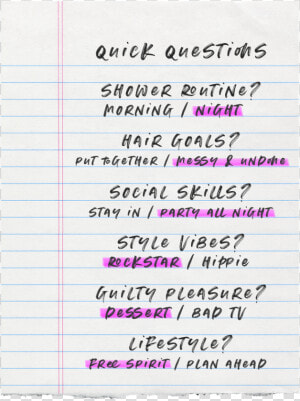 QUICK QUESTIONS
SHOWER ROUTINE?
MORNING / NIGHT
HAIR GOALS?
PUT TOGETHER / MESSY & UNDONE
SOCIAL SKILLS?
STAY IN / PARTY ALL NIGHT
STYLE VIBES?
ROCKSTAR / HIPPIE
GUILTY PLEASURE?
DESSERT / BAD TV
LIFESTYLE?
FREE SPIRIT / PLAN AHEAD